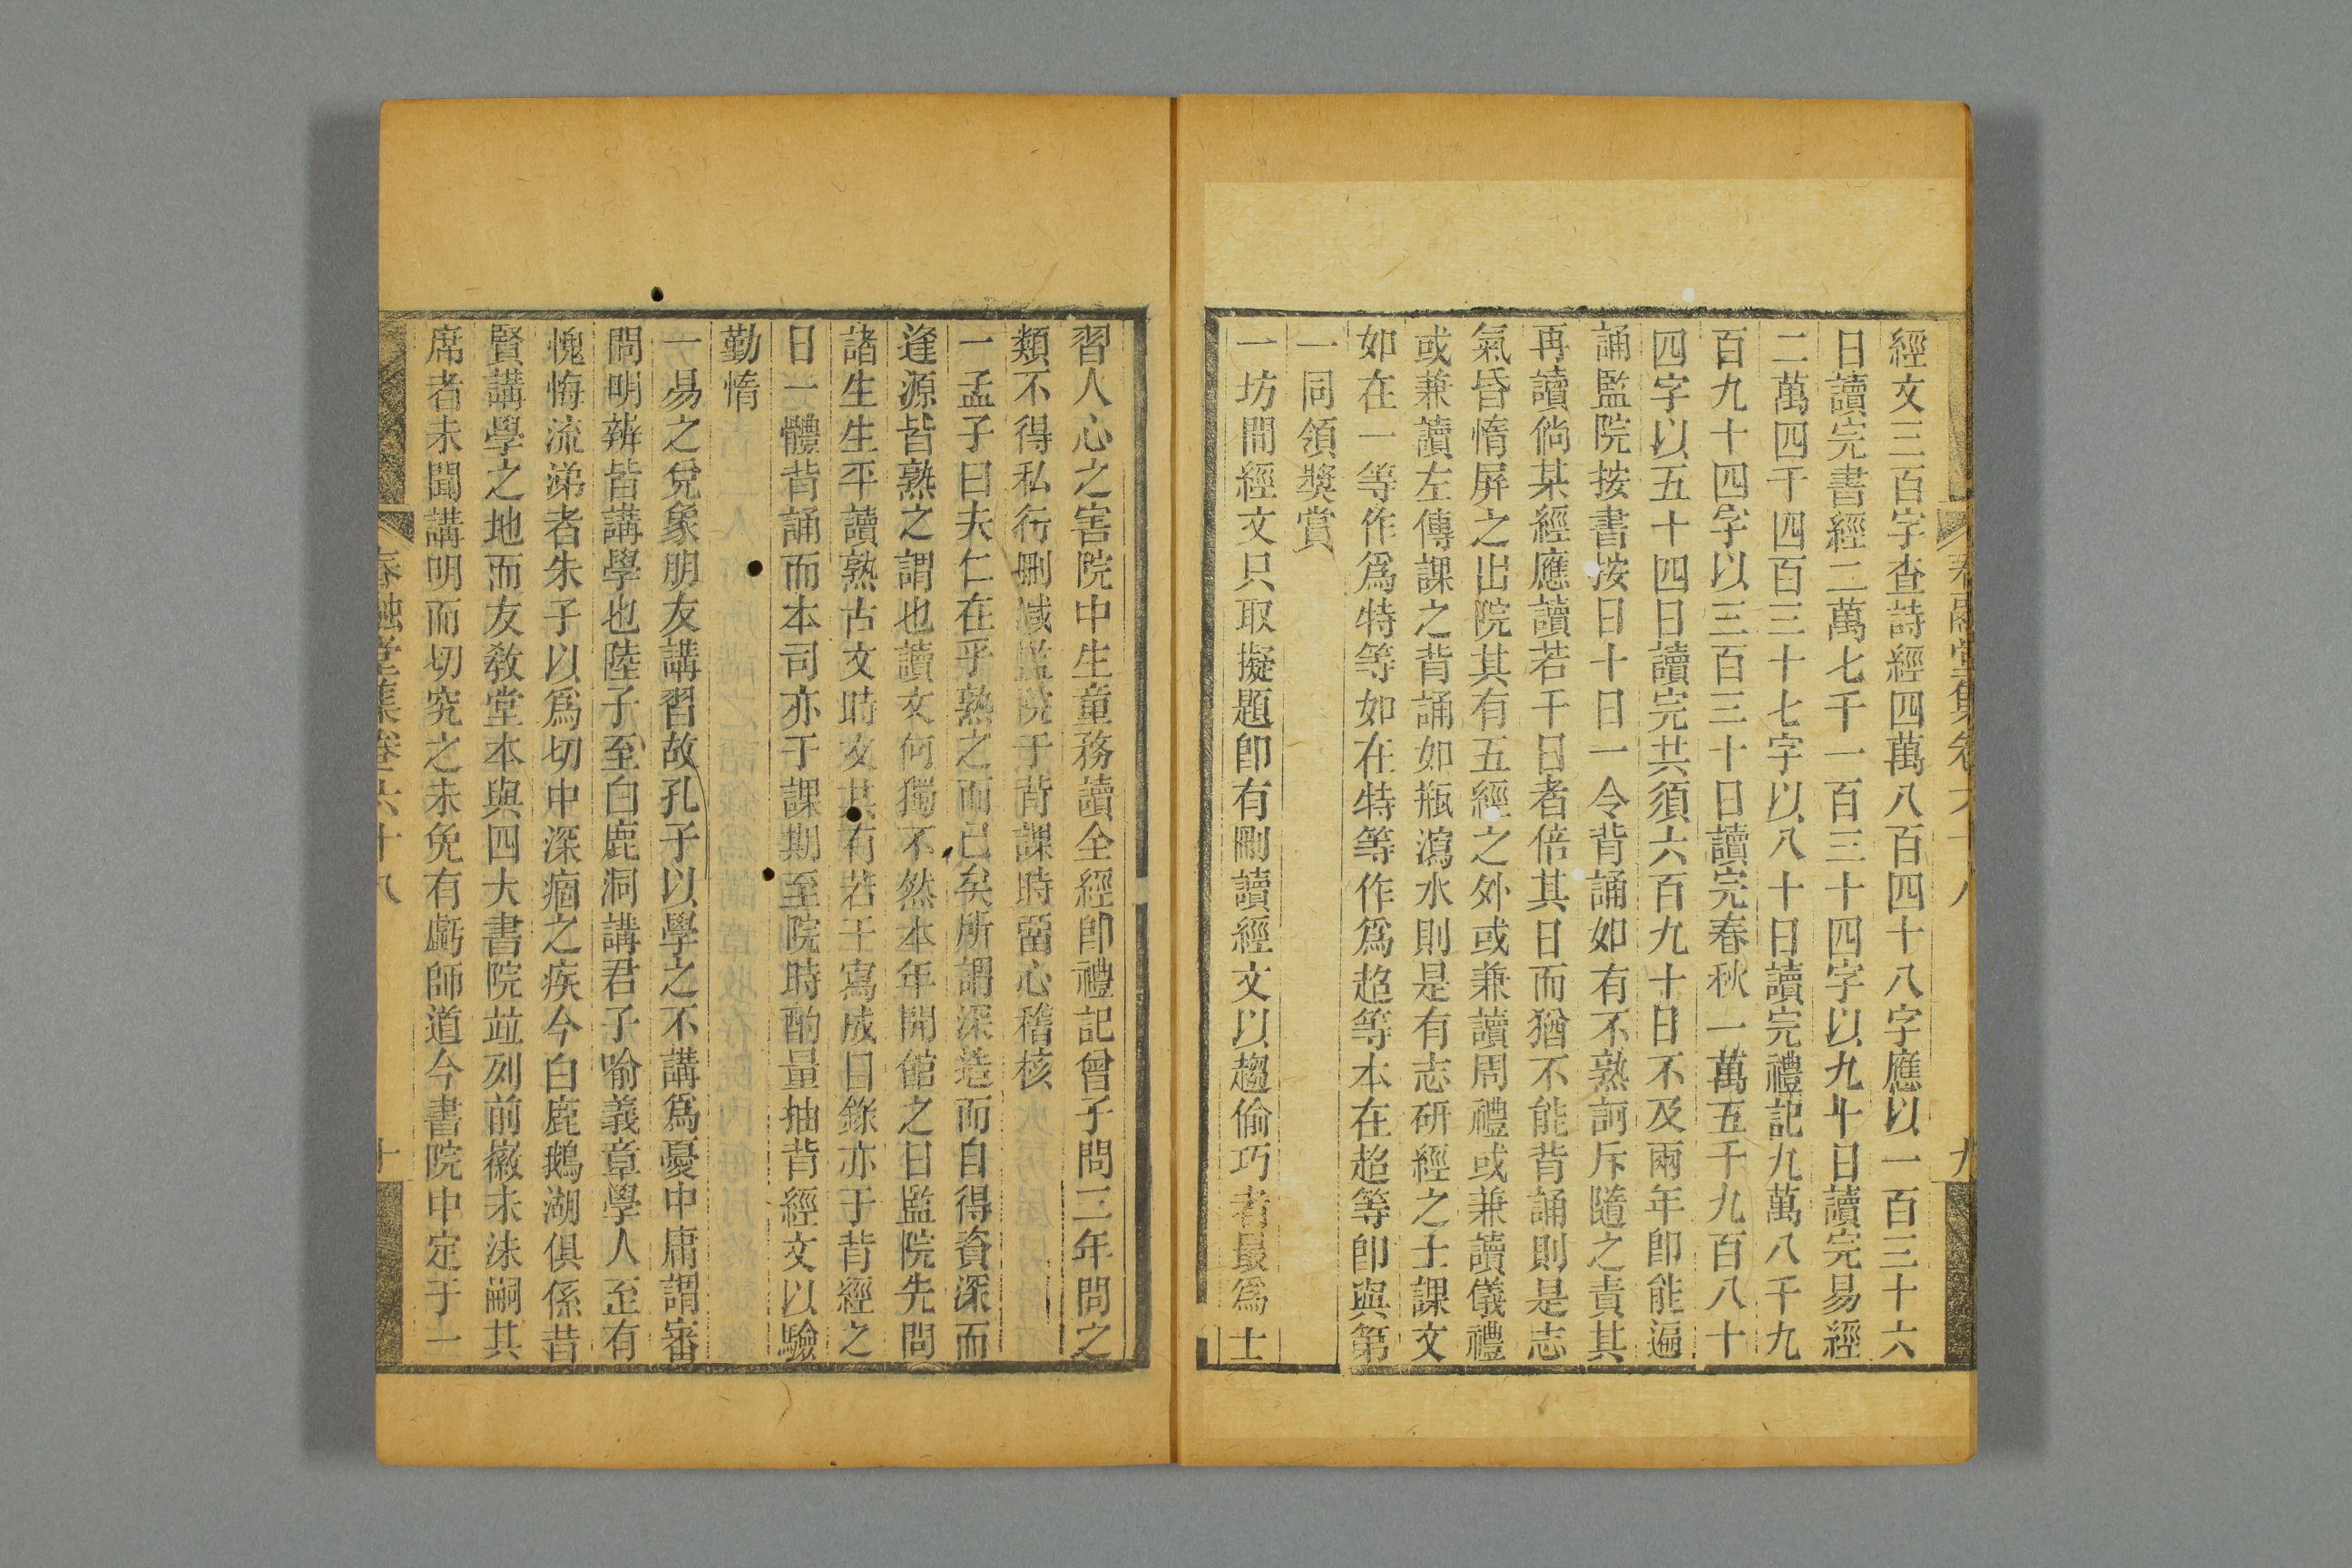 經文三百字查詩經四萬八百四十八字應以一百三十六
日讀完書經二萬七千一百三十四字以九十日讀完易經
二萬四千四百三十七字以八十日讀完禮記九萬八千九
百九十四字以三百三十日讀完春秋一萬五千九百八十
四字以五十四日讀完共須六百九十日不及兩年卽能遍
誦監院按書按日十日一令背誦如有不熟訶斥隨之責其
再讀倘某經應讀若干日者倍其日而猶不能背誦則是志
氣昏惰屏之出院其有五經之外或兼讀周禮或兼讀儀禮
或兼讀左傳課之背誦如瓶瀉水則是有志硏經之士課文
如在一等作爲特等如在特等作爲超等本在超等卽與第
一同領獎賞
一坊間經文只取擬題卽有刪讀經文以趨偷巧者最爲士
習人心之害院中生童務讀全經卽禮記曾子問三年問之
類不得私行刪減監院于背課時畱心稽核
一孟子曰夫仁在乎熟之而已矣所謂深造而自得資深而
逢源皆熟之謂也讀文何獨不然本年開館之日監院先問
諸生生平讀熟古文時文其有若干寫成目錄亦于背經之
日一體背誦而本司亦于課期至院時酌量抽背經文以驗
勤惰
一易之兌象朋友講習故孔子以學之不講爲憂中庸謂審
問明辨皆講學也陸子至白鹿洞講君子喻義章學人至有
愧悔流涕者朱子以爲切中深痼之疾今白鹿鵝湖俱係昔
賢講學之地而友敎堂本與四大書院竝列前徽未沬嗣其
席者未聞講明而切究之未免有虧師道今書院中定于一
春融堂集卷六十八
十